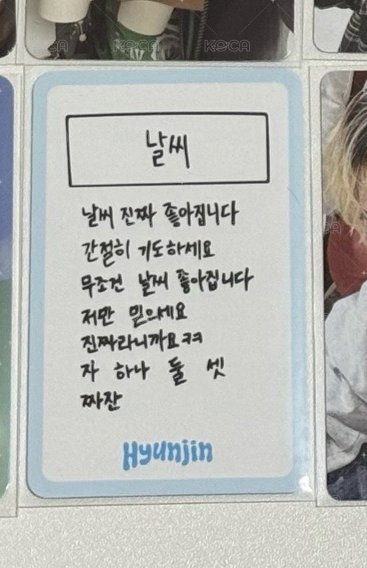 KCA
KCA
날씨
날씨 진짜 좋아집니다
간절히 기도하세요
무조건 날씨 좋아집니다
저만 믿으세요
진짜라니까요ㅋㅋ
자 하나 둘 셋
짜잔
Hyunjin